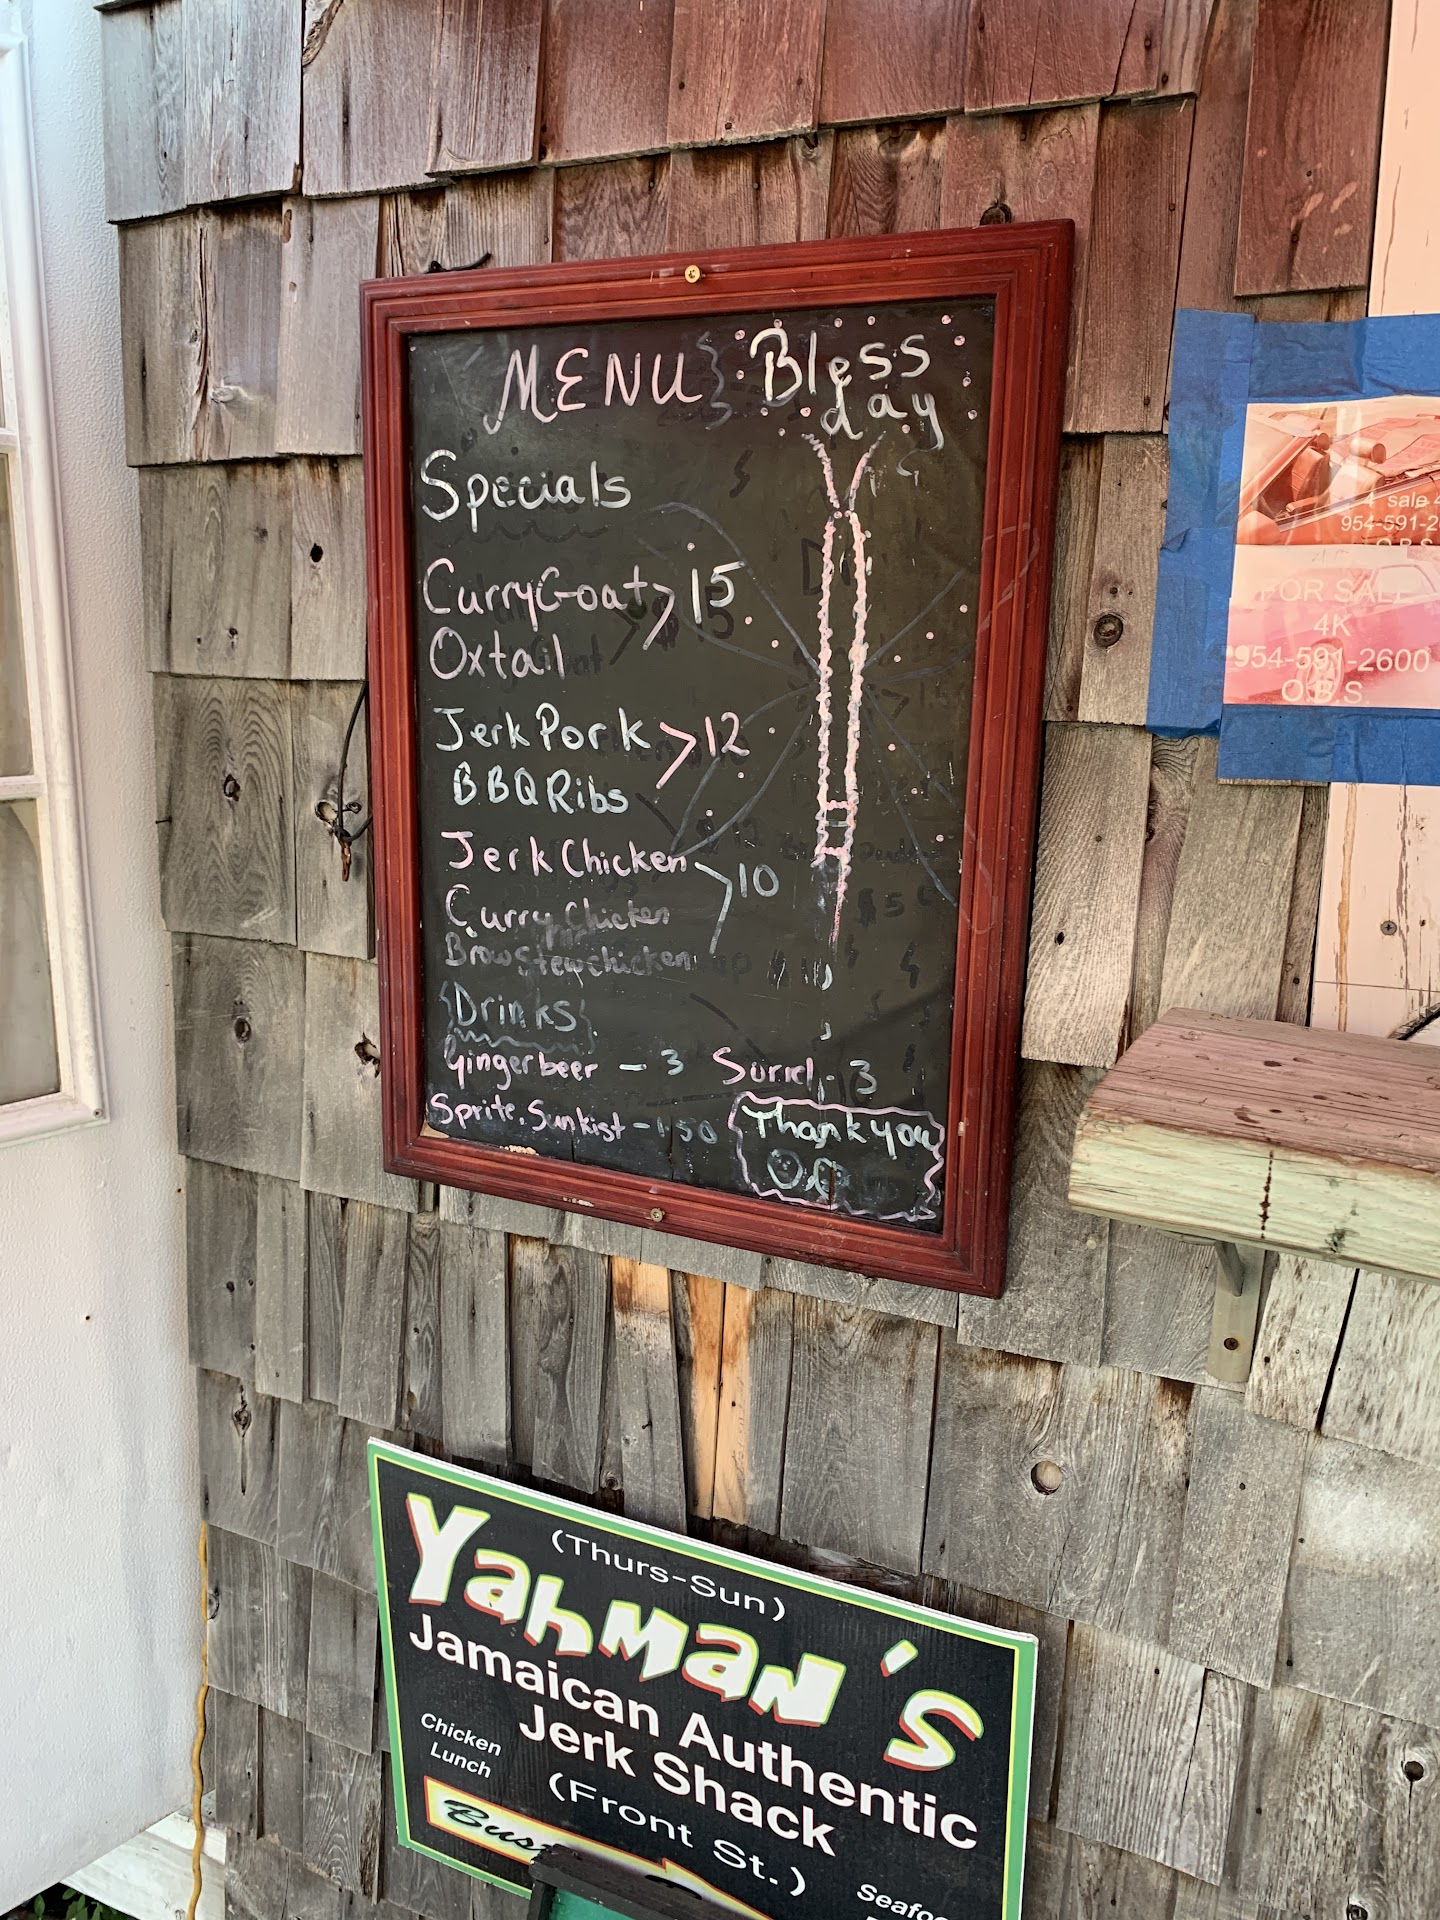 MENU} Bless day
Specials
Curry Goat > 15
Oxtail
Jerk Pork > 12
BBQ Ribs
Jerk Chicken > 10
Curry Chicken
Brow Stew chicken
{Drinks}
Gingerbeer - 3
Sorrel - 3
Sprite, Sunkist - 1.50
Thank you
4 sale 4
954-591-2
O.B.S
FOR SALE
4K
954-591-2600
O.B.S.
(Thurs-Sun)
Yahman's
Jamaican Authentic
Jerk Shack
(Front St.)
Chicken
Lunch